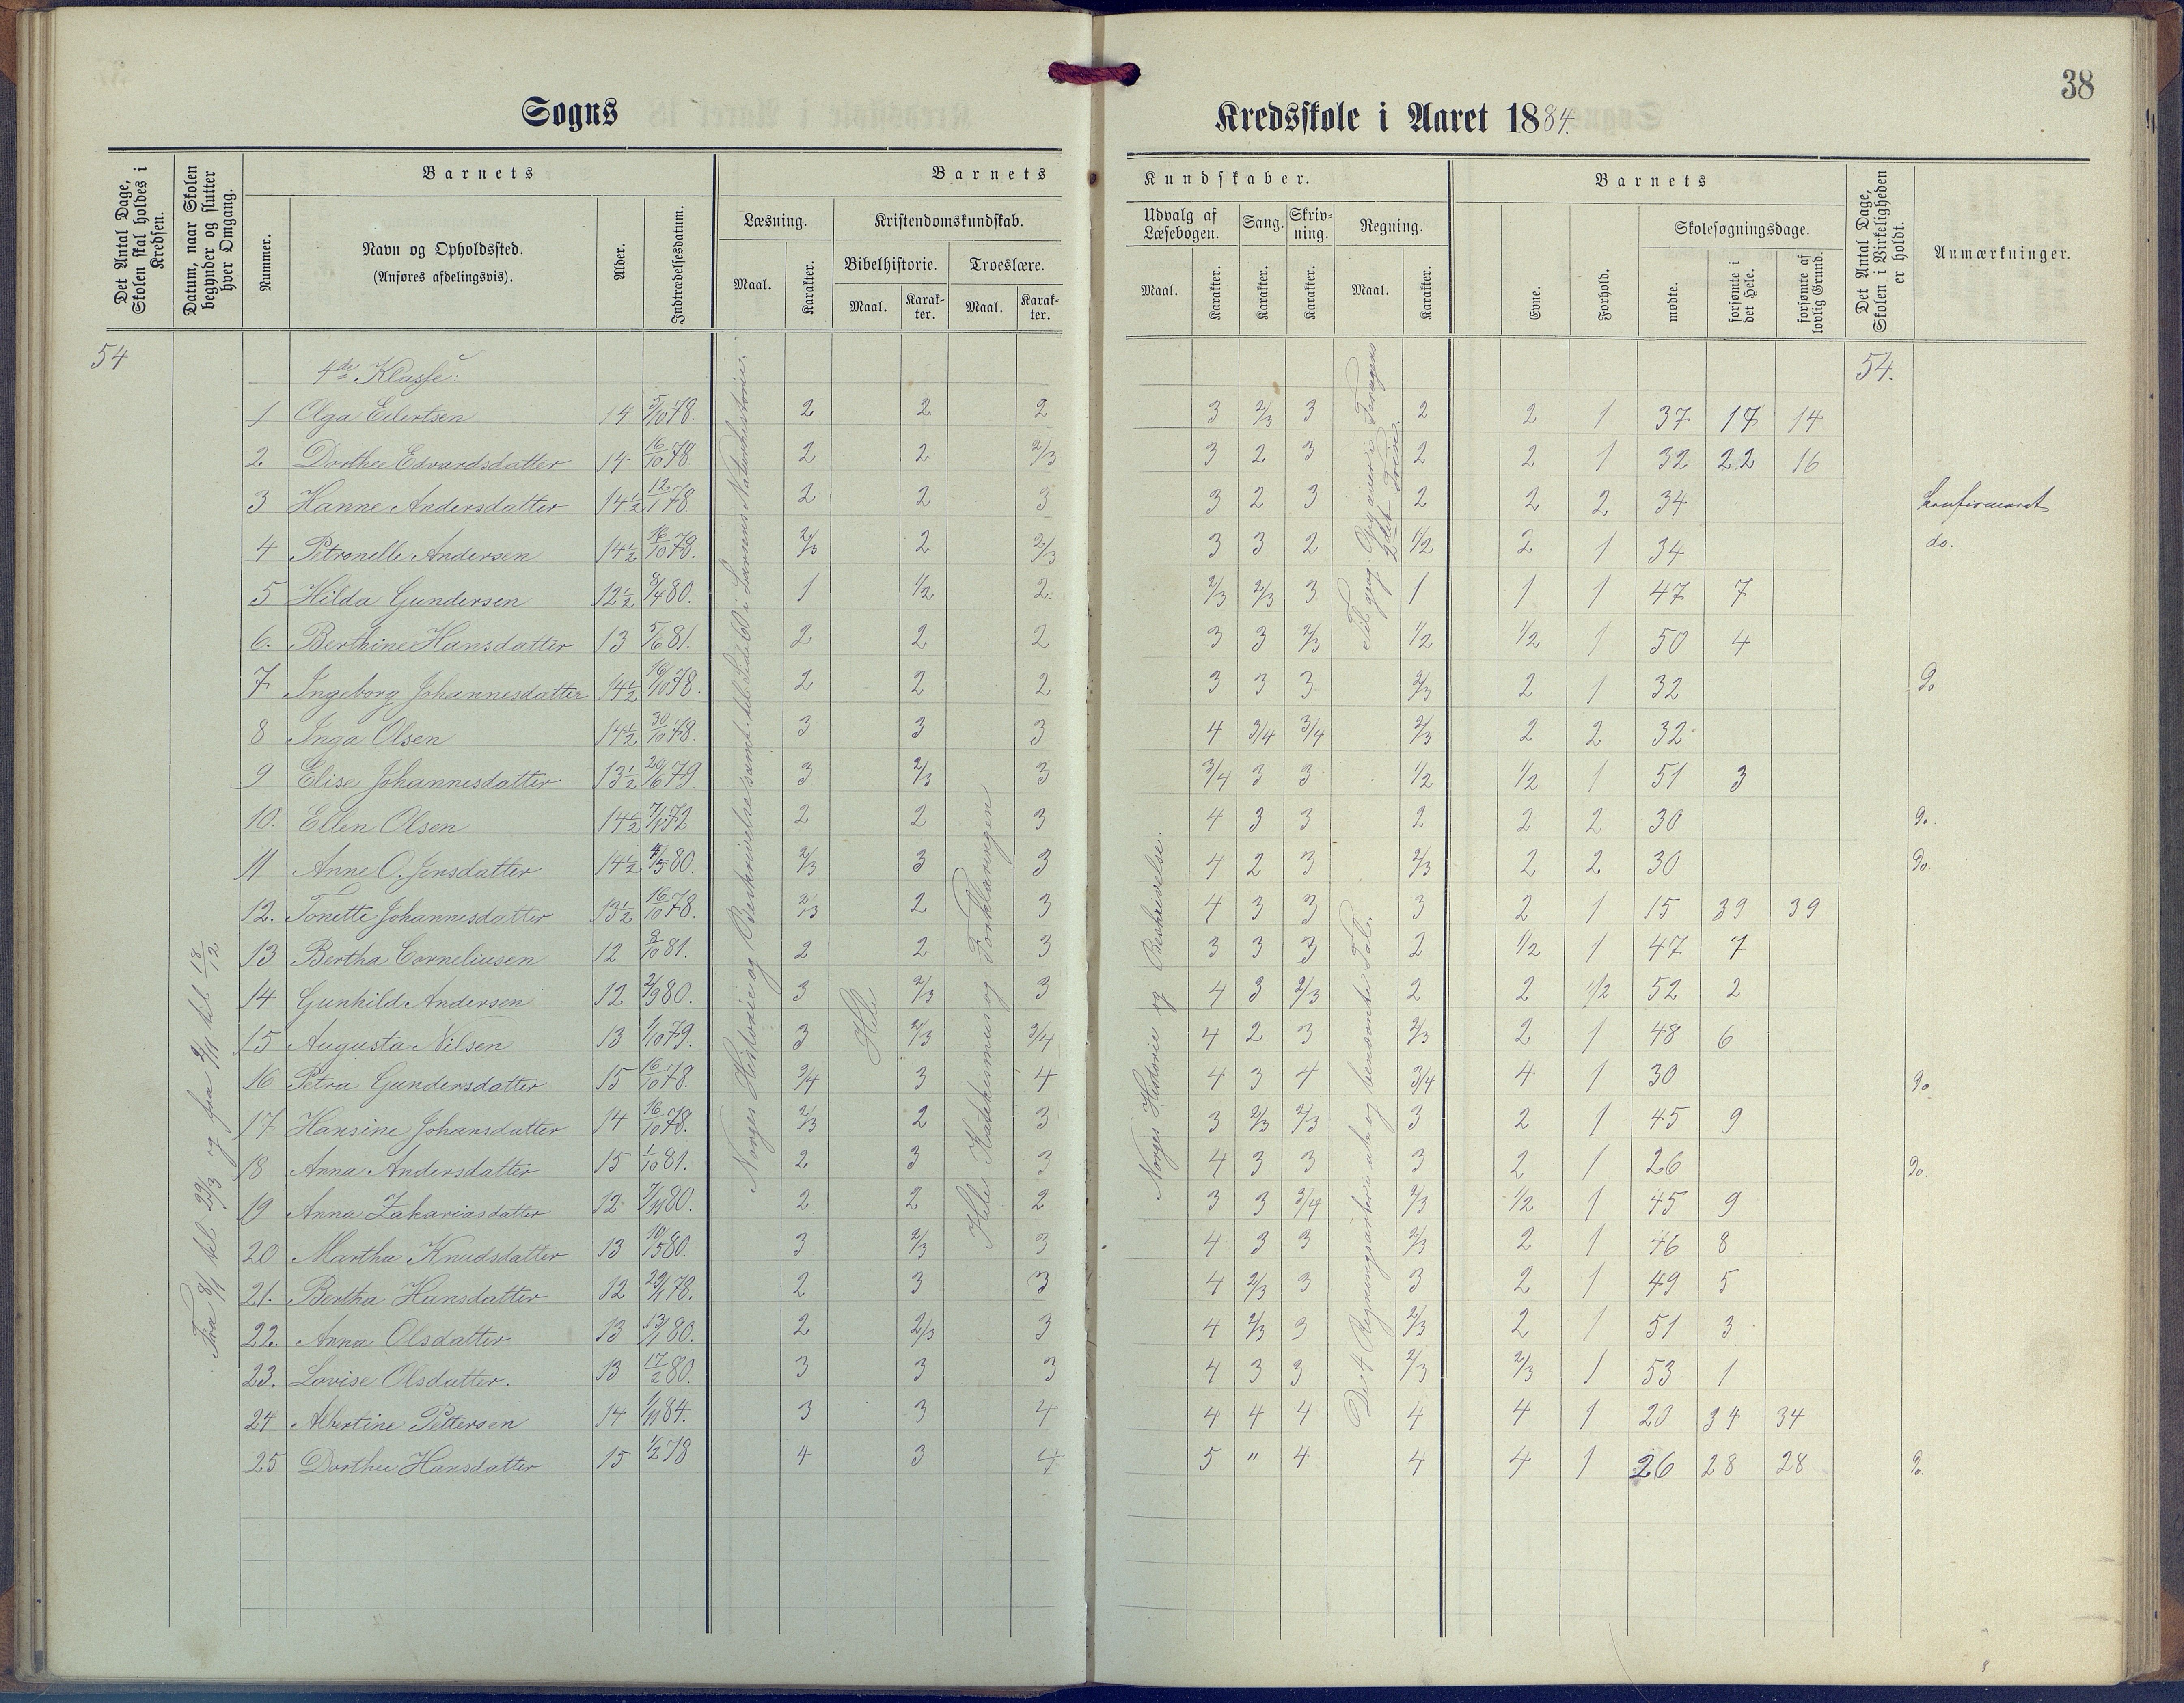 38
Sogns Kredsskole i Aaret 1884.
Det Antal Dage, Skolen skal holdes i Kredsen.
Datum, naar Skolen begynder og slutter hver Omgang.
Barnets
Nummer.
Navn og Opholdssted.
(Anføres afdelingsvis).
Alder.
Indtrædelsesdatum.
Barnets Kundskaber.
Læsning.
Maal.
Karakter.
Kristendomskundskab.
Bibelhistorie.
Maal.
Karakter.
Troeslære.
Maal.
Karakter.
Udvalg af Læsebogen.
Maal.
Karakter.
Sang.
Karakter.
Skrivning.
Karakter.
Regning.
Maal.
Karakter.
Barnets
Evne.
Forhold.
Skolesøgningsdage.
mødte.
forsømte i det Hele.
forsømte af lovlig Grund.
Det Antal Dage, Skolen i Virkeligheden er holdt.
Anmærkninger.
54 4de Klasse: 54.
1 Olga Eilertsen 14 5/10 78. 2 2 2 3 2/3 3 2 2 1 37 17 14
2 Dorthee Edvardsdatter 14 16/10 78. 2 2 2/3 3 2 3 2 2 1 32 22 16
3 Hanne Andersdatter 14 1/2 12/1 78. 2 2 3 3 2 3 2 2 2 34 konfirmeret
4 Petronelle Andersen 14 1/2 16/10 78. 2/3 2 2/3 3 3 2 1/2 2 1 34 do.
5 Hilda Gundersen 12 1/2 8/4 80. 1 1/2 2 2/3 2/3 3 1 1 1 47 7
6. Berthine Hansdatter 13 5/6 81. 2 2 2 3 3 2/3 1/2 1/2 1 50 4
7 Ingeborg Johannesdatter 14 1/2 16/10 78. 2 2 2 3 3 3 2/3 2 1 32 Do
8 Inga Olsen 14 1/2 30/10 78. 3 3 3 4 3/4 3/4 2/3 2 2 32
9 Elise Johannesdatter 13 1/2 20/6 79. 3 2/3 3 3/4 3 3 1/2 1/2 1 51 3
10. Ellen Olsen 14 1/2 2 2 3 4 3 3 2 2 2 30 Do.
11 Anne O. Jensdatter 14 1/2 2/3 3 3 4 2 3 2/3 2 2 30 Do.
12. Tonette Johannesdatter 13 1/2 16/10 78. 2/3 2 3 4 3 3 3 2 1 15 39 39
13 Bertha Corneliusen 12 3/10 81. 2 2 3 3 3 3 2 1/2 1 47 7
14 Gunhild Andersen 12 2/9 80. 3 2/3 3 4 3 2/3 2 2 1/2 52 2
15 Augusta Nilsen 13 1/10 79. 3 2/3 3/4 4 2 3 2/3 2 1 48 6
16 Petra Gundersdatter 15 16/10 78. 3/4 3 4 4 3 4 3/4 4 1 30 Do.
17 Hansine Johansdatter 14 16/10 78. 2/3 2 3 3 2/3 2/3 3 2 1 45 9
18 Anna Andersdatter 15 1/10 81. 2 3 3 4 3 3 3 2 1 26 Do.
19 Anna Zakariasdatter 12 7/11 80. 2 2 2 3 3 3/4 2/3 1/2 1 45 9
20 Martha Knudsdatter 13 10/5 80. 3 2/3 3 4 3 3 2/3 2 1 46 8
21. Bertha Hansdatter 12 29/1 78. 2 3 3 4 2/3 3 3 2 1 49 5
22. Anna Olsdatter 13 13/1 80. 2 2/3 3 4 2/3 3 2/3 2 1 51 3
23. Lovise Olsdatter. 13 17/2 80. 3 3 3 4 3 3 2/3 2/3 1 53 1
24 Albertine Pettersen 14 1/11 84. 3 3 4 4 4 4 4 4 1 20 34 34
25 Dorthee Hansdatter 15 1/2 78 4 3 4 5 " 4 4 4 1 26 28 28 Do.
Fra 8/1 til 29/3 og fra 3/11 til 18/12
Norges Historie og Beskrivelse samt til Side 60 i Larsens Naturhistorie.
Hele
Hele Katekismus og Forklaringen
Norges Historie og Beskrivelse.
De 4 Regningsarter i ube og benævnte Tal.
Til geog. Opgaver i Feragens 2det Trin.